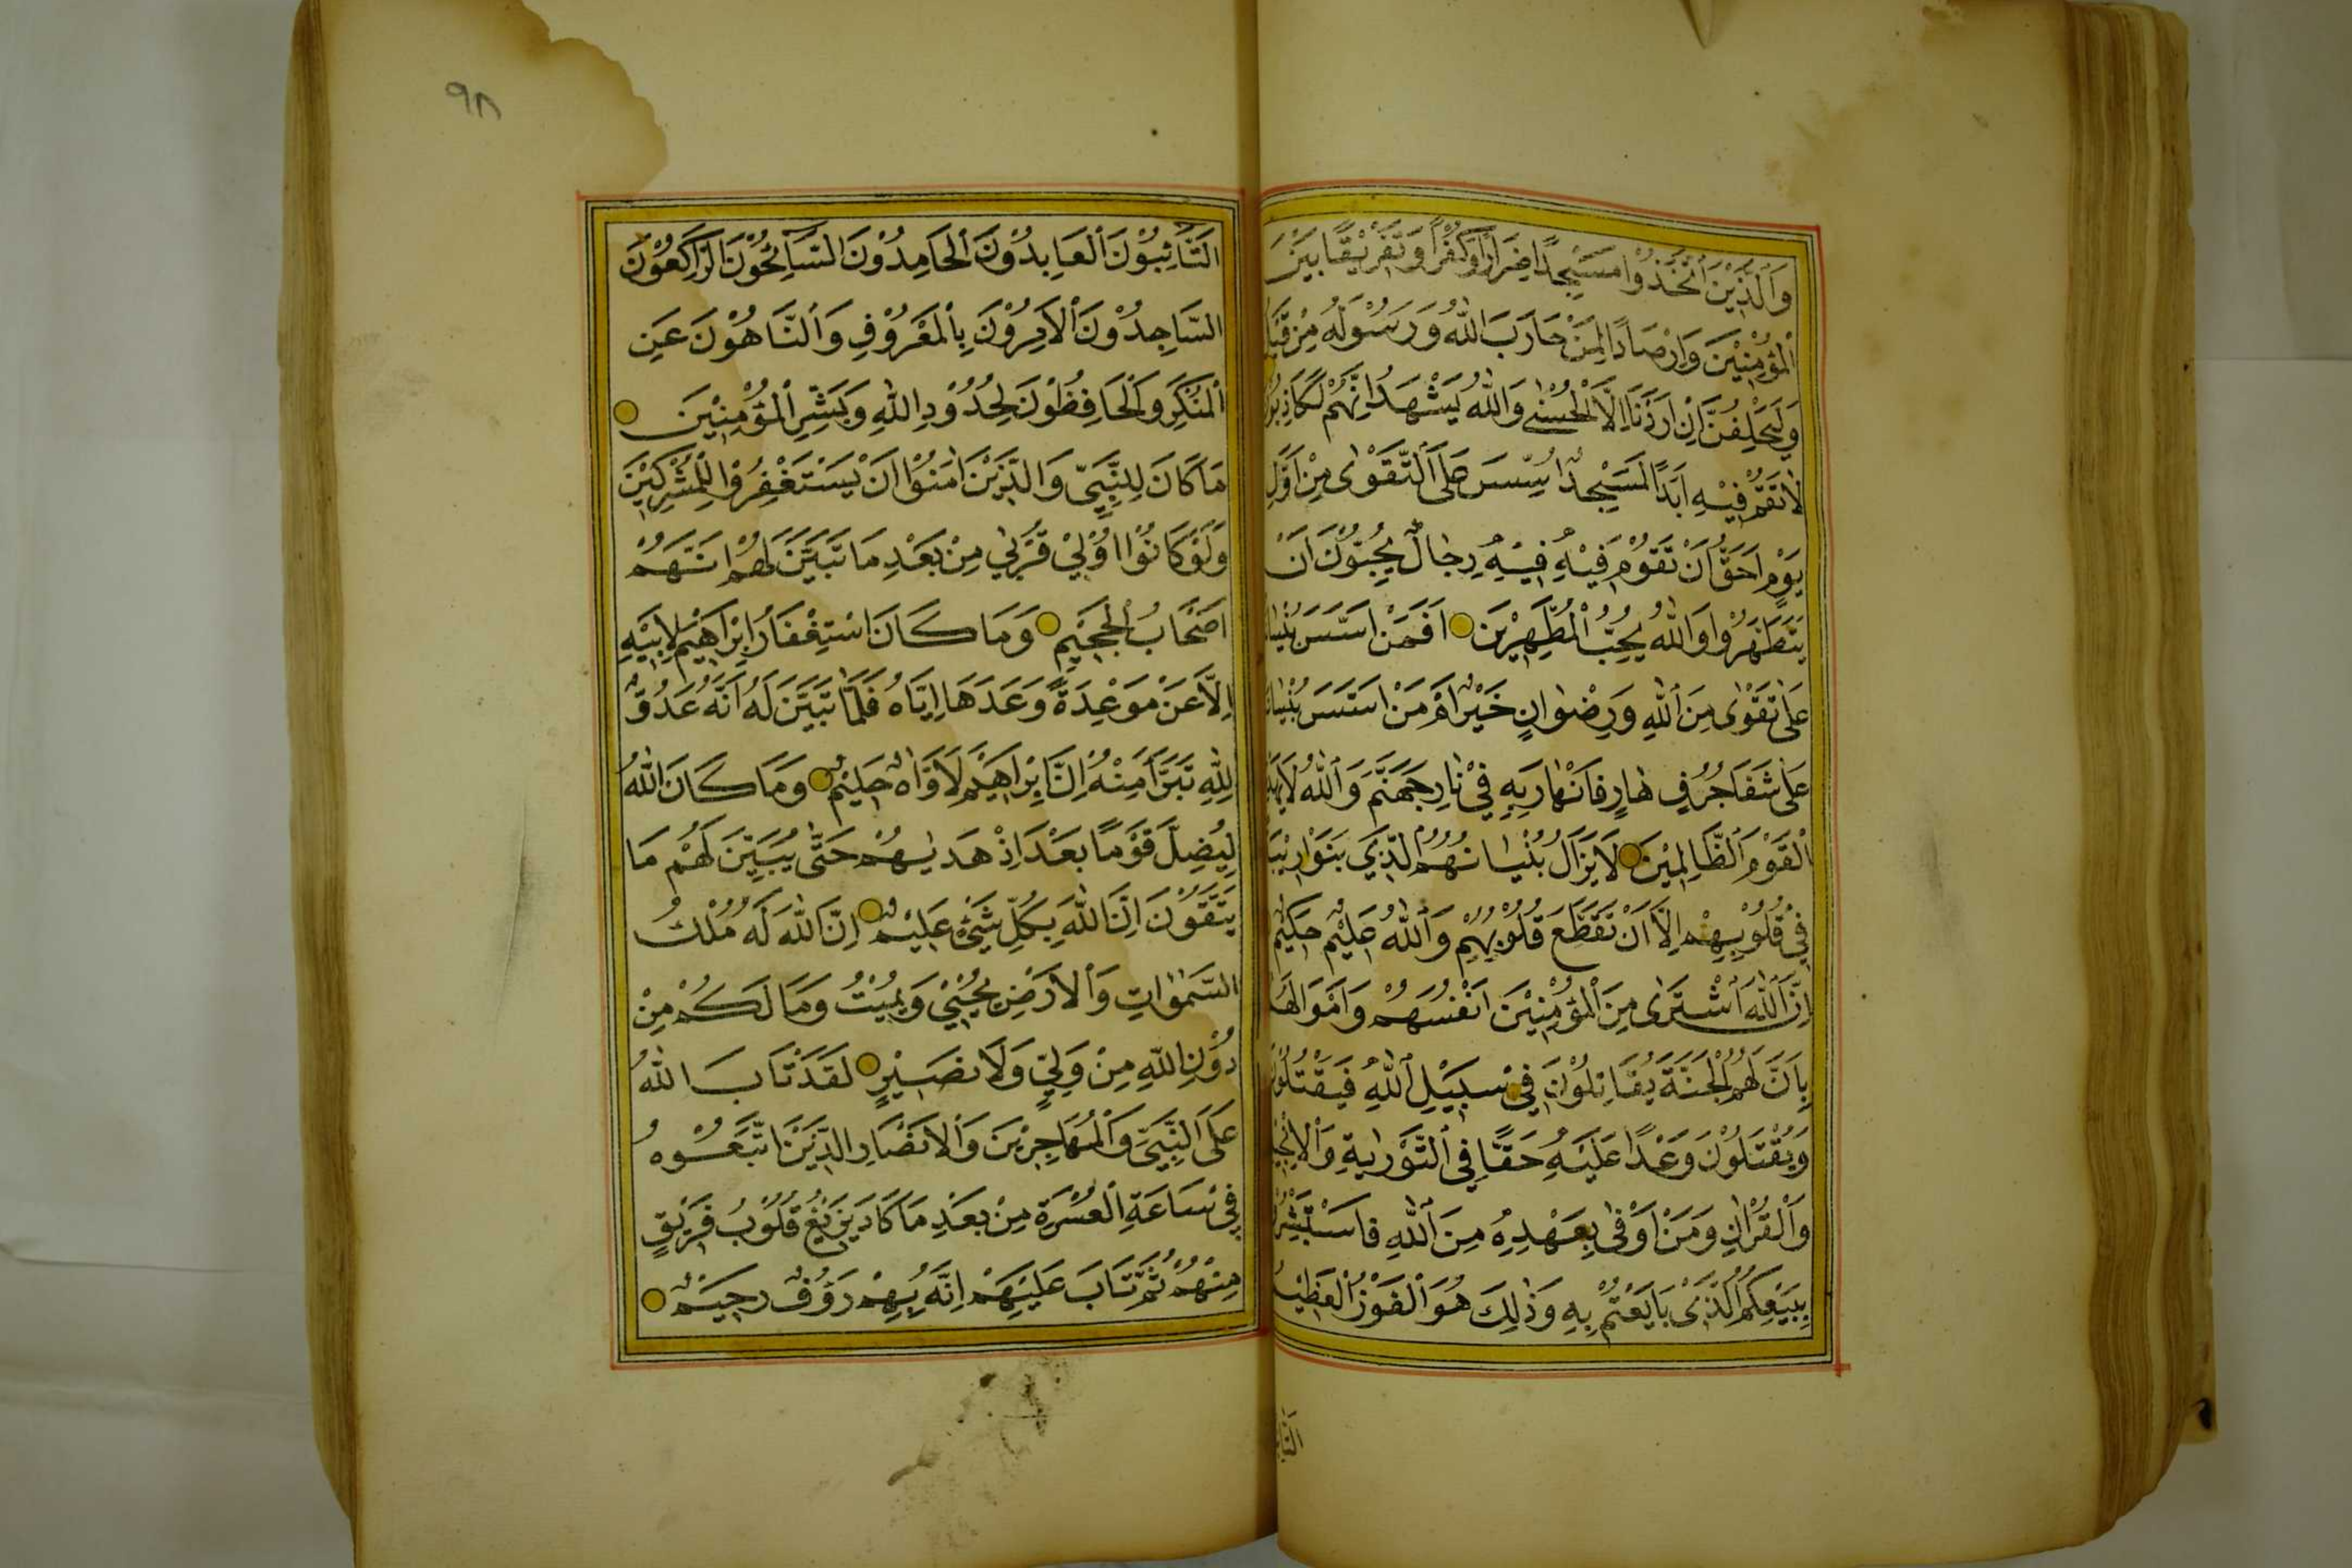 وَالَّذِيْنَ اتَّخَذُوْا مَسْجِدًا ضِرَارًا وَكُفْرًا وَتَفْرِيْقًا بَيْنَ
الْمُؤْمِنِيْنَ وَاِرْصَادًا لِمَنْ حَارَبَ اللّٰهَ وَرَسُوْلَهُ مِنْ قَبْلُ
وَلَيَحْلِفُنَّ اِنْ اَرَدْنَا اِلَّا الْحُسْنٰى وَاللّٰهُ يَشْهَدُ اِنَّهُمْ لَكَاذِبُوْنَ
لَا تَقُمْ فِيْهِ اَبَدًا لَمَسْجِدٌ اُسِّسَ عَلَى التَّقْوٰى مِنْ اَوَّلِ
يَوْمٍ اَحَقُّ اَنْ تَقُوْمَ فِيْهِ فِيْهِ رِجَالٌ يُحِبُّوْنَ اَنْ
يَتَطَهَّرُوْا وَاللّٰهُ يُحِبُّ الْمُطَّهِّرِيْنَ اَفَمَنْ اَسَّسَ بُنْيَانَهُ
عَلٰى تَقْوٰى مِنَ اللّٰهِ وَرِضْوَانٍ خَيْرٌ اَمْ مَنْ اَسَّسَ بُنْيَانَهُ
عَلٰى شَفَا جُرُفٍ هَارٍ فَانْهَارَ بِهِ فِيْ نَارِ جَهَنَّمَ وَاللّٰهُ لَا يَهْدِى
الْقَوْمَ الظَّالِمِيْنَ لَا يَزَالُ بُنْيَانُهُمُ الَّذِيْ بَنَوْا رِيْبَةً
فِيْ قُلُوْبِهِمْ اِلَّا اَنْ تَقَطَّعَ قُلُوْبُهُمْ وَاللّٰهُ عَلِيْمٌ حَكِيْمٌ
اِنَّ اللّٰهَ اشْتَرٰى مِنَ الْمُؤْمِنِيْنَ اَنْفُسَهُمْ وَاَمْوَالَهُمْ
بِاَنَّ لَهُمُ الْجَنَّةَ يُقَاتِلُوْنَ فِيْ سَبِيْلِ اللّٰهِ فَيَقْتُلُوْنَ
وَيُقْتَلُوْنَ وَعْدًا عَلَيْهِ حَقًّا فِي التَّوْرٰيةِ وَالْاِنْجِيْلِ
وَالْقُرْاٰنِ وَمَنْ اَوْفٰى بِعَهْدِهِ مِنَ اللّٰهِ فَاسْتَبْشِرُوْا
بِبَيْعِكُمُ الَّذِيْ بَايَعْتُمْ بِهِ وَذٰلِكَ هُوَ الْفَوْزُ الْعَظِيْمُ
٩٨
اَلتَّائِبُوْنَ الْعَابِدُوْنَ الْحَامِدُوْنَ السَّائِحُوْنَ الرَّاكِعُوْنَ
السَّاجِدُوْنَ الْاٰمِرُوْنَ بِالْمَعْرُوْفِ وَالنَّاهُوْنَ عَنِ
الْمُنْكَرِ وَالْحَافِظُوْنَ لِحُدُوْدِ اللّٰهِ وَبَشِّرِ الْمُؤْمِنِيْنَ
مَا كَانَ لِلنَّبِيِّ وَالَّذِيْنَ اٰمَنُوْا اَنْ يَسْتَغْفِرُوْا لِلْمُشْرِكِيْنَ
وَلَوْ كَانُوْا اُوْلِيْ قُرْبٰى مِنْ بَعْدِ مَا تَبَيَّنَ لَهُمْ اَنَّهُمْ
اَصْحَابُ الْجَحِيْمِ وَمَا كَانَ اسْتِغْفَارُ اِبْرَاهِيْمَ لِاَبِيْهِ
اِلَّا عَنْ مَوْعِدَةٍ وَعَدَهَا اِيَّاهُ فَلَمَّا تَبَيَّنَ لَهُ اَنَّهُ عَدُوٌّ
لِلّٰهِ تَبَرَّأَ مِنْهُ اِنَّ اِبْرَاهِيْمَ لَاَوَّاهٌ حَلِيْمٌ وَمَا كَانَ اللّٰهُ
لِيُضِلَّ قَوْمًا بَعْدَ اِذْ هَدٰيهُمْ حَتّٰى يُبَيِّنَ لَهُمْ مَا
يَتَّقُوْنَ اِنَّ اللّٰهَ بِكُلِّ شَيْءٍ عَلِيْمٌ اِنَّ اللّٰهَ لَهُ مُلْكُ
السَّمٰوَاتِ وَالْاَرْضِ يُحْيِيْ وَيُمِيْتُ وَمَا لَكُمْ مِنْ
دُوْنِ اللّٰهِ مِنْ وَلِيٍّ وَلَا نَصِيْرٍ لَقَدْ تَابَ اللّٰهُ
عَلَى النَّبِيِّ وَالْمُهَاجِرِيْنَ وَالْاَنْصَارِ الَّذِيْنَ اتَّبَعُوْهُ
فِيْ سَاعَةِ الْعُسْرَةِ مِنْ بَعْدِ مَا كَادَ يَزِيْغُ قُلُوْبُ فَرِيْقٍ
مِنْهُمْ ثُمَّ تَابَ عَلَيْهِمْ اِنَّهُ بِهِمْ رَؤُفٌ رَحِيْمٌ